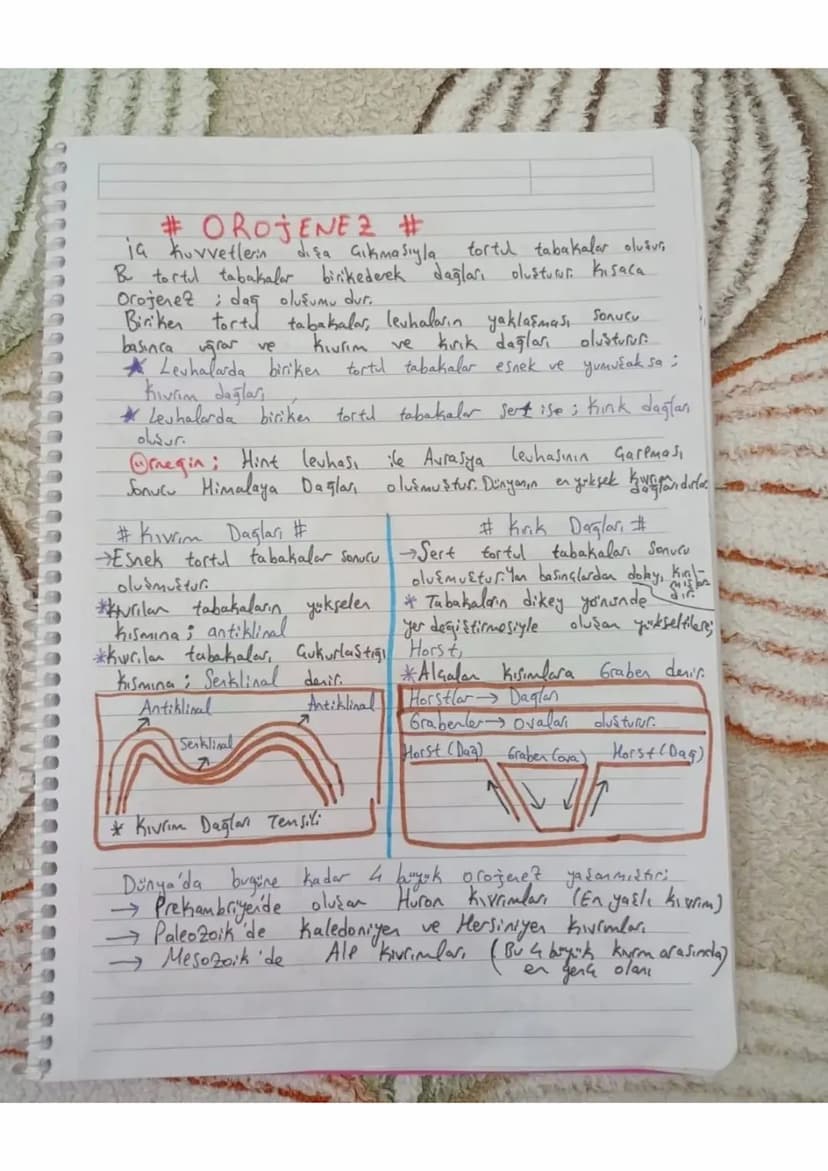 # OROJENEZ #
iç kuvvetlerin dışa çıkmasıyla tortul tabakalar oluşur.
Bu tortul tabakalar birikederek dağları oluşturur. Kısaca
Orojenez ; dağ oluşumu dur.
Biriken tortul tabakalar, levhaların yaklaşması sonucu
basınca uğrar ve kıvrım ve kırık dağları oluşturur.
★ Levhalarda biriken tortul tabakalar esnek ve yumuşak sa ;
kıvrım dağları,
★ Levhalarda biriken tortul tabakalar sert ise ; kırık dağları
oluşur.
Örneğin ; Hint levhası ile Avrasya levhasının çarpması
sonucu Himalaya Dağları oluşmuştur. Dünyanın en yüksek kıvrım
dağlarıdırlar
# Kıvrım Dağları #
→ Esnek tortul tabakalar sonucu
oluşmuştur.
*Kıvrılan tabakaların yükselen
kısmına ; antiklinal
*Kıvrılan tabakaları çukurlaştığı
kısmına ; Senklinal denir.
Antiklinal Antiklinal
Senklinal
* Kıvrım Dağları Temsili
# Kırık Dağları #
→ Sert tortul tabakaları sonucu
oluşmuştur. Yan basınçlardan dolayı kırıl-
mışlar
dır.
* Tabakaların dikey yönünde
yer değiştirmesiyle oluşan yükseltilere;
Horst,
*Alçalan kısımlara Graben denir.
Horstlar → Dağları
Grabenler → ovaları oluşturur.
Horst (Dağ) Graben (ova) Horst (Dağ)
Dünya'da bugüne kadar 4 büyük orojenez yaşanmıştır;
→ Prekambriyen'de oluşan Huron kıvrımları (En yaşlı kıvrım)
→ Paleozoik'de Kaledoniyen ve Hersiniyen kıvrımları
→ Mesozoik'de Alp kıvrımları (Bu 4 büyük kıvrım arasında)
en genç olanı